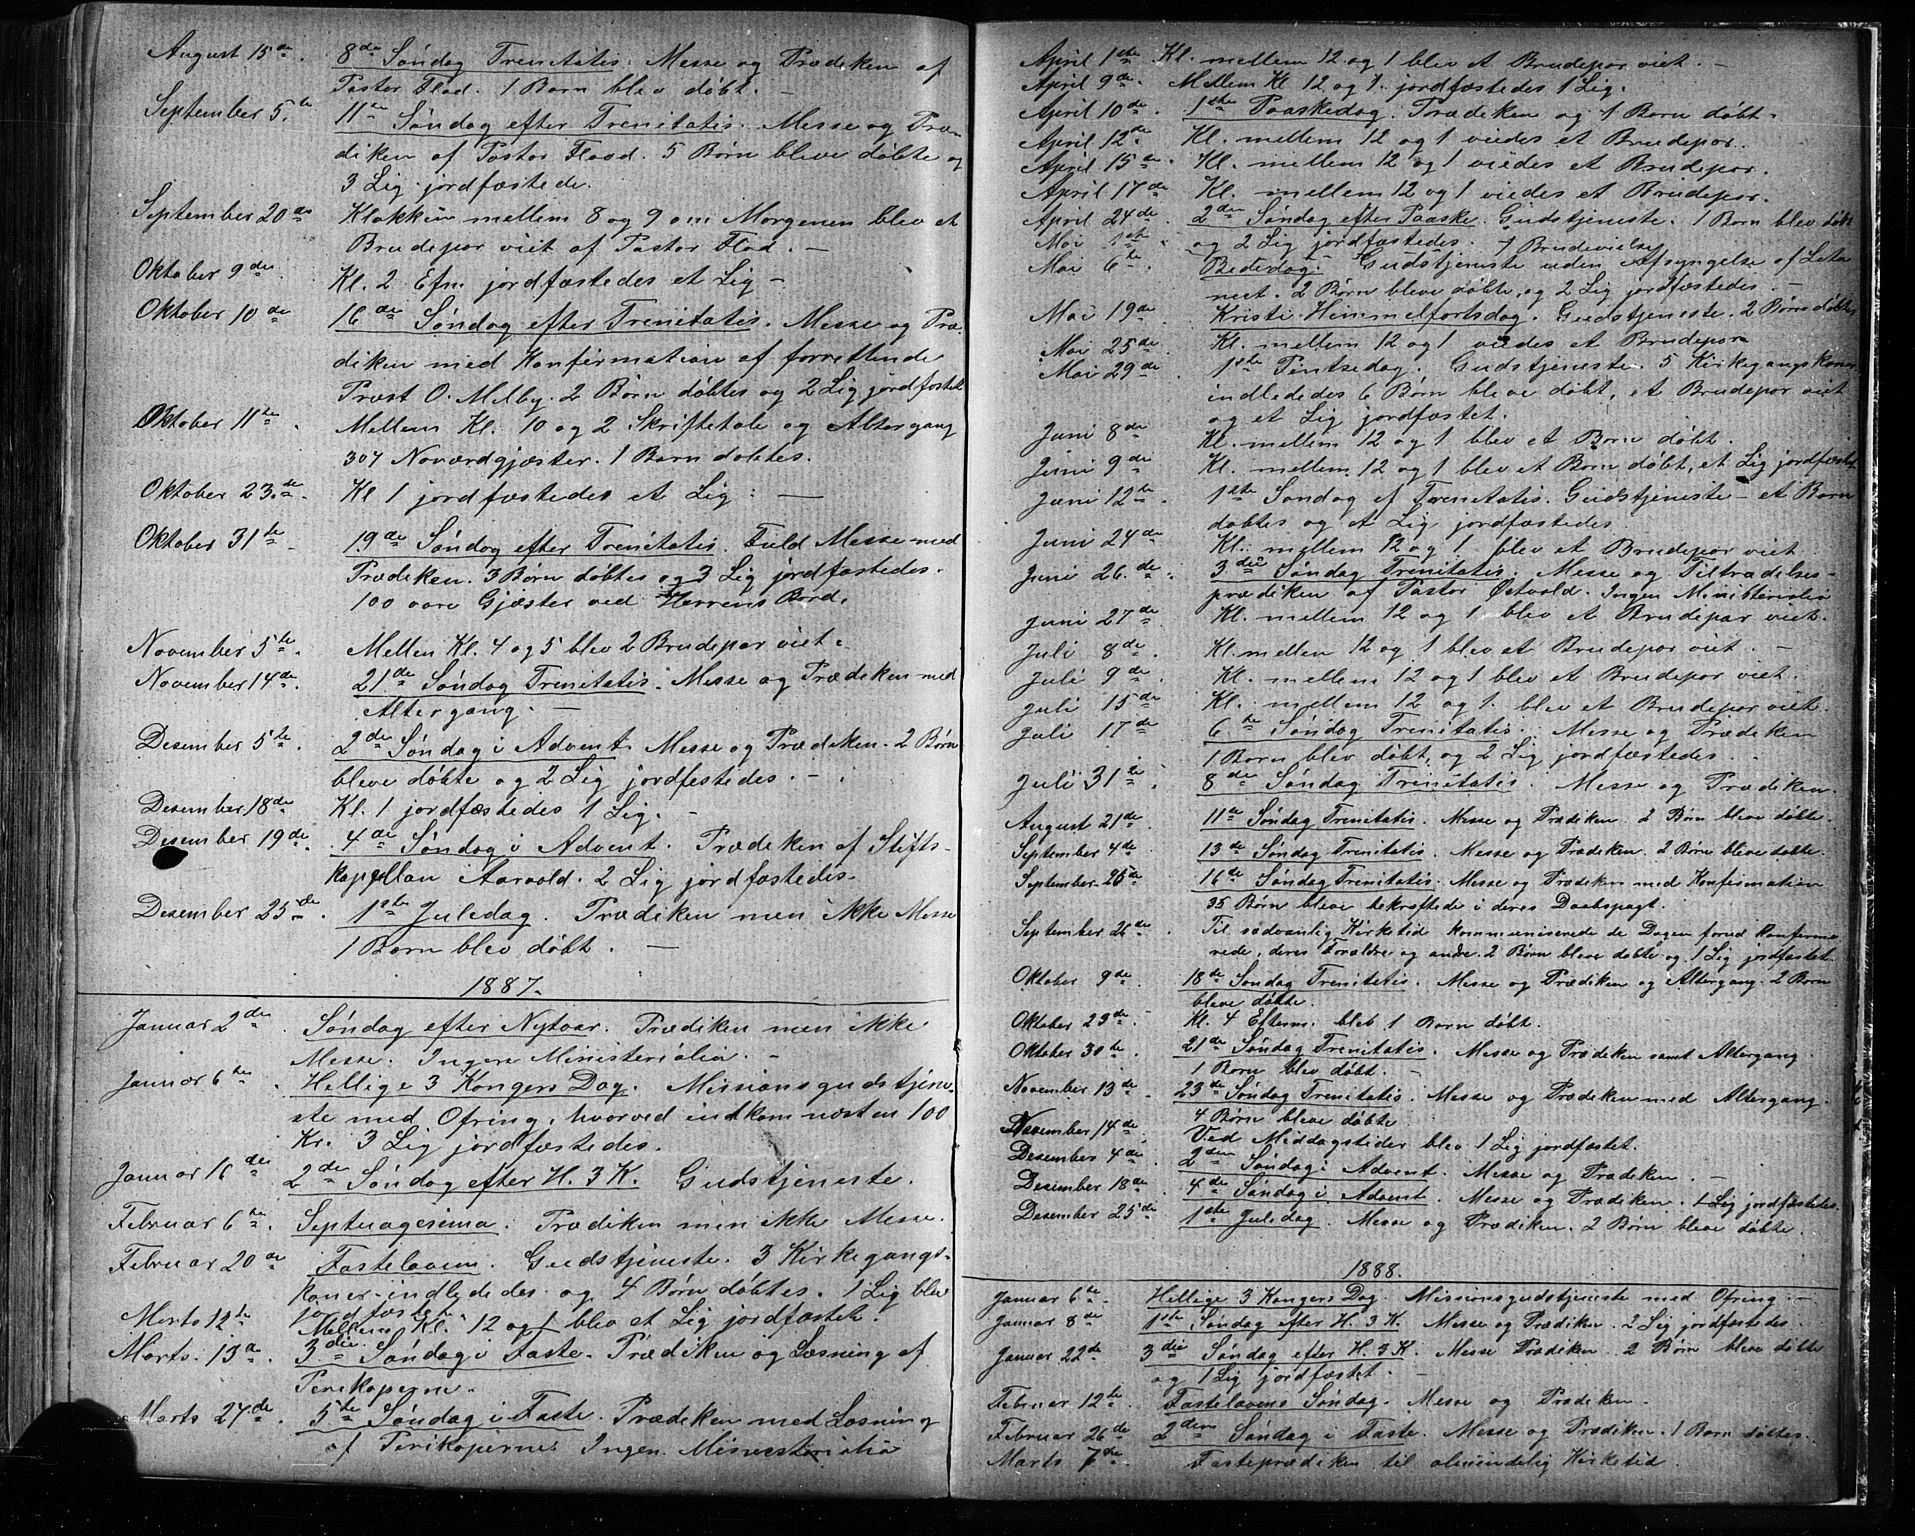 August 15de. 8de Søndag Trenitatis. Messe og Prædiken af
Pastor Flod. 1 Barn blev døbt. —
September 5te 11te Søndag efter Trenitatis. Messe og Præ-
diken af Pastor Flood. 5 Børn bleve døbte og
3 Lig jordfæstede.
September 20de Klokken mellem 8 og 9 om Morgenen blev et
Brudepar viet af Pastor Flod. —
Oktober 9de. Kl. 2 Efm jordfæstedes et Lig —
Oktober 10de 16de Søndag efter Trenitatis. Messe og Præ-
diken med Konfirmation af forrettende
Præst O. Melby. 2 Børn døbtes og 2 Lig jordfæstet
Oktober 11te. Mellem Kl. 10 og 2 Skriftetale og Altergang
307 Nadverdgjæster. 1 Barn døbtes.
Oktober 23de. Kl 1 jordfæstedes et Lig. —
Oktober 31te 19de Søndag efter Trenitatis. Fuld Messe med
Prædiken. 3 Børn døbtes og 3 Lig jordfæstedes.
100 vare Gjæster ved Herrens Bord.
November 5te. Mellem Kl. 4 og 5 blev 2 Brudepar viet.
November 14de. 21de Søndag Trenitatis. Messe og Prædiken med
Altergang. —
Desember 5te. 2de Søndag i Advent. Messe og Prædiken. 2 Børn
bleve døbte og 2 Lig jordfestedes. —
Desember 18de Kl. 1 jordfæstedes 1 Lig. —
Desember 19de. 4de Søndag i Advent. Prædiken af Stifts-
kapellan Aarvold. 2 Lig jordfæstedes.
Desember 25de. 1ste Juledag. Prædiken men ikke Messe
1 Barn blev døbt. —
1887.
Januar 2den Søndag efter Nytaar. Prædiken men ikke
Messe. Ingen Ministerialia. —
Januar 6te. Hellige 3 Kongers Dag. Missionsgudstjene-
ste med Ofring, hvorved indkom næsten 100
Kr. 3 Lig jordfæstedes.
Januar 16de 2den Søndag efter H. 3 K. Gudstjeneste.
Februar 6te. Septuagesima. Prædiken men ikke Messe.
Februar 20de Fastelavn. Gudstjeneste. 3 Kirkegangs-
koner indlededes og 4 Børn døbtes. 1 Lig blev
jordfæstet.
Marts 12te Mellem Kl. 12 og 1 blev et Lig jordfæstet.
Marts. 13de. 3die Søndag i Faste. Prædiken og Læsning af
Perikoperne.
Marts 27de. 5te Søndag i Faste. Prædiken med Læsning
af Perikoperne. Ingen Ministerialia
April 1ste Kl. mellem 12 og 1 blev et Brudepar viet. —
April 9de. Mellem Kl 12 og 1 jordfæstedes 1 Lig.
April 10de. 1ste Paaskedag. Prædiken og 1 Barn døbt.
April 12te Kl. mellem 12 og 1 viedes et Brudepar.
April 15de. Kl. mellem 12 og 1 viedes et Brudepar.
April 17de Kl. mellem 12 og 1 viedes et Brudepar.
April 24de 2den Søndag efter Paaske. Gudstjeneste. 1 Barn blev døbt
og 2 Lig jordfæstedes.
Mai 1ste 1 Brudevielse
Mai 6te. Bededag. Gudstjeneste uden Afsyngelse af Lita-
niet. 2 Børn bleve døbte, og 2 Lig jordfæstedes —
Mai 19de. Kristi Himmelfartsdag. Gudstjeneste. 2 Børn døbtes
Mai 25de. Kl. mellem 12 og 1 viedes et Brudepar
Mai 29de. 1ste Pintsedag. Gudstjeneste. 5 Kirkegangskoner
indlededes 6 Børn bleve døbt, et Brudepar viet
og et Lig jordfæstet.
Juni 8de Kl. mellem 12 og 1 blev et Barn døbt.
Juni 9de Kl. mellem 12 og 1 blev et Barn døbt, et Lig jordfæstet
Juni 12te. 1ste Søndag ef Trenitatis. Gudstjeneste — et Barn
døbtes og et Lig jordfæstedes.
Juni 24de Kl. mellem 12 og 1 blev et Brudepar viet
Juni 26de. 3die Søndag Trenitatis. Messe og Tiltrædelses-
prædiken af Pastor Østvold. Ingen Ministerialia
Juni 27de Kl. mellem 12 og 1 blev et Brudepar viet.
Juli 8de. Kl. mellem 12 og 1 blev et Brudepar viet. —
Juli 9de Kl. mellem 12 og 1 blev et Brudepar viet.
Juli 15de Kl. mellem 12 og 1 blev et Brudepar viet.
Juli 17de 6te Søndag Trenitatis. Messe og Prædiken
1 Barn blev døbt, og 2 Lig jordfæstedes.
Juli 31te. 8de Søndag Trenitatis. Messe og Prædiken.
August 21de. 11te Søndag Trenitatis. Messe og Prædiken. 2 Børn bleve døbte.
September 4de. 13de Søndag Trenitatis. Messe og Prædiken. 2 Børn bleve døbte.
September 25de 16de Søndag Trenitatis. Messe og Prædiken med Konfirmation
35 Børn bleve bekræftede i deres Daabspagt.
September 26de Til sædvanlig Kirketid kommuniserede de Dagen forud Konfirme-
rede, deres Forældre og andre. 2 Børn bleve døbte og 1 Lig jordfæstet.
Oktober 9de 18de Søndag Trenitatis. Messe og Prædiken og Altergang. 2 Børn
bleve døbte.
Oktober 23de. Kl. 4 Efterm. blev 1 Barn døbt.
Oktober 30te 21de Søndag Trenitatis. Messe og Prædiken samt Altergang.
1 Barn blev døbt. —
November 13de 23de Søndag Trenitatis. Messe og Prædiken med Altergang.
4 Børn bleve døbte
November 14de. Ved Middagstider blev 1 Lig jordfæstet.
Desember 4de. 2den Søndag i Advent. Messe og Prædiken. —
Desember 18de. 4de Søndag i Advent. Messe og Prædiken. 1 Lig jordfæstedes.
Desember 25de 1ste Juledag. Messe og Prædiken. 2 Børn bleve døbte.
1888.
Januar 6te. Hellige 3 Kongers Dag. Missionsgudstjeneste med Ofring. —
Januar 8de 1ste Søndag efter H. 3 K. Messe og Prædiken. 2 Lig jordfæstedes.
Januar 22de 3die Søndag efter H. 3 K. Messe Prædiken. 2 Børn bleve døbte
og 1 Lig jordfæstet. —
Februar 12te. Fastelavens Søndag. Messe og Prædiken.
Februar 26de 2den Søndag i Faste. Messe og Prædiken. 1 Barn døbtes.
Marts 7de. Fasteprædiken til almindelig Kirketid.